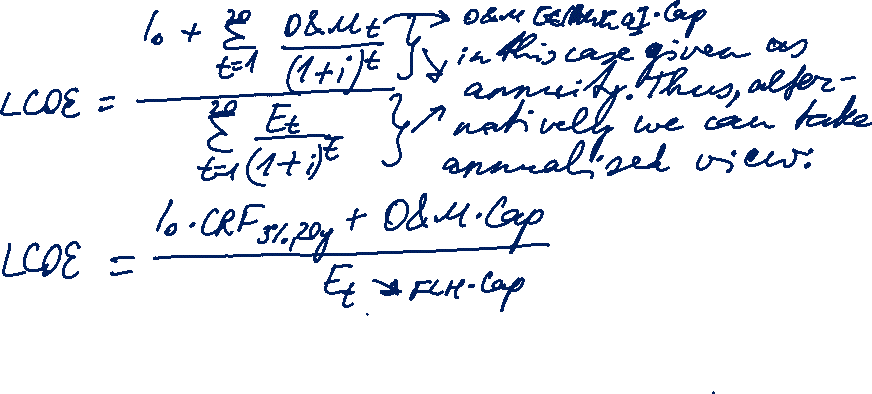 LCOE = \frac{I_0 + \sum_{t=1}^{20} \frac{O\&M_t}{(1+i)^t}}{\sum_{t=1}^{20} \frac{E_t}{(1+i)^t}}
→ O&M · Cap
in this case given as
annuity. Thus, alter-
natively we can take
annualised view:
LCOE = \frac{I_0 \cdot CRF_{3\%,20y} + O\&M \cdot Cap}{E_t → FLH \cdot Cap}